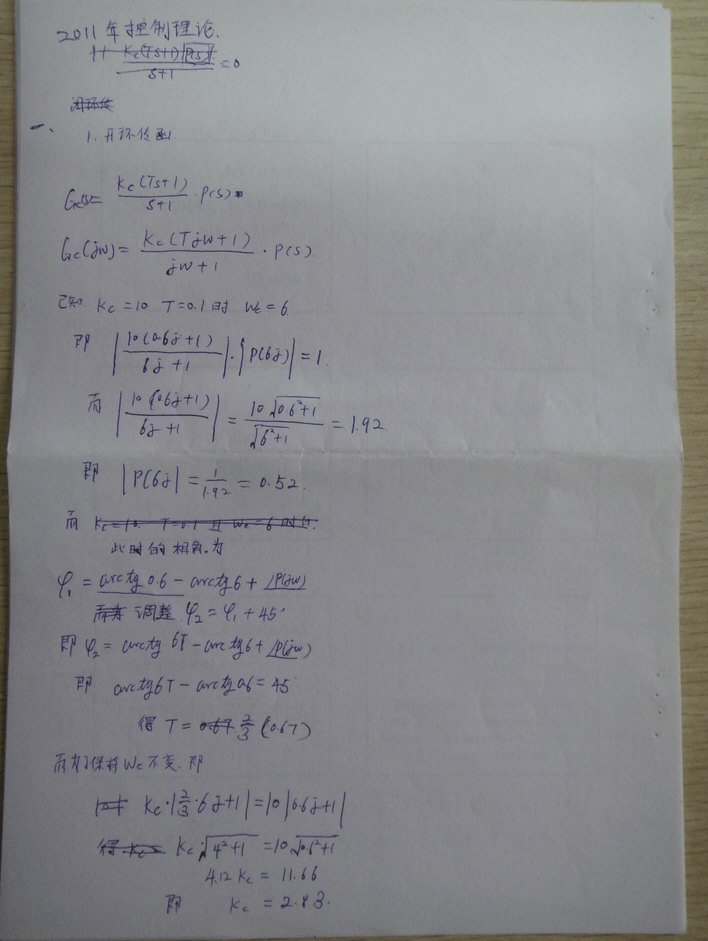 2011年控制理论.
1+ Kc(Ts+1)|P(s)| / s+1 = 0
闭环传
一、
1. 开环传函
Gc(s)= Kc(Ts+1) / s+1 · P(s)
Gc(jw)= Kc(Tjw+1) / jw+1 · P(s).
已知 Kc=10 T=0.1时 Wc=6
即 |10(0.6j+1) / 6j+1|·|P(6j)|=1.
而 |10(0.6j+1) / 6j+1| = 10√0.6²+1 / √6²+1 = 1.92
即 |P(6j| = 1/1.92 = 0.52.
而 Kc=10. T=0.1 且 Wc=6时
此时的相角.为
φ₁ = arctg 0.6 - arctg 6 + ∠P(jw)
调整 φ₂ = φ₁ + 45°
即 φ₂ = arctg 6T - arctg 6 + ∠P(jw)
即 arctg6T - arctg0.6 = 45°
得 T = 0.67 2/3 (0.67)
而为了保持Wc不变. 即
Kc·|2/3·6j+1|=10|0.6j+1|
得 Kc Kc√4²+1 =10√0.6²+1
4.12 Kc = 11.66
即 Kc = 2.83.